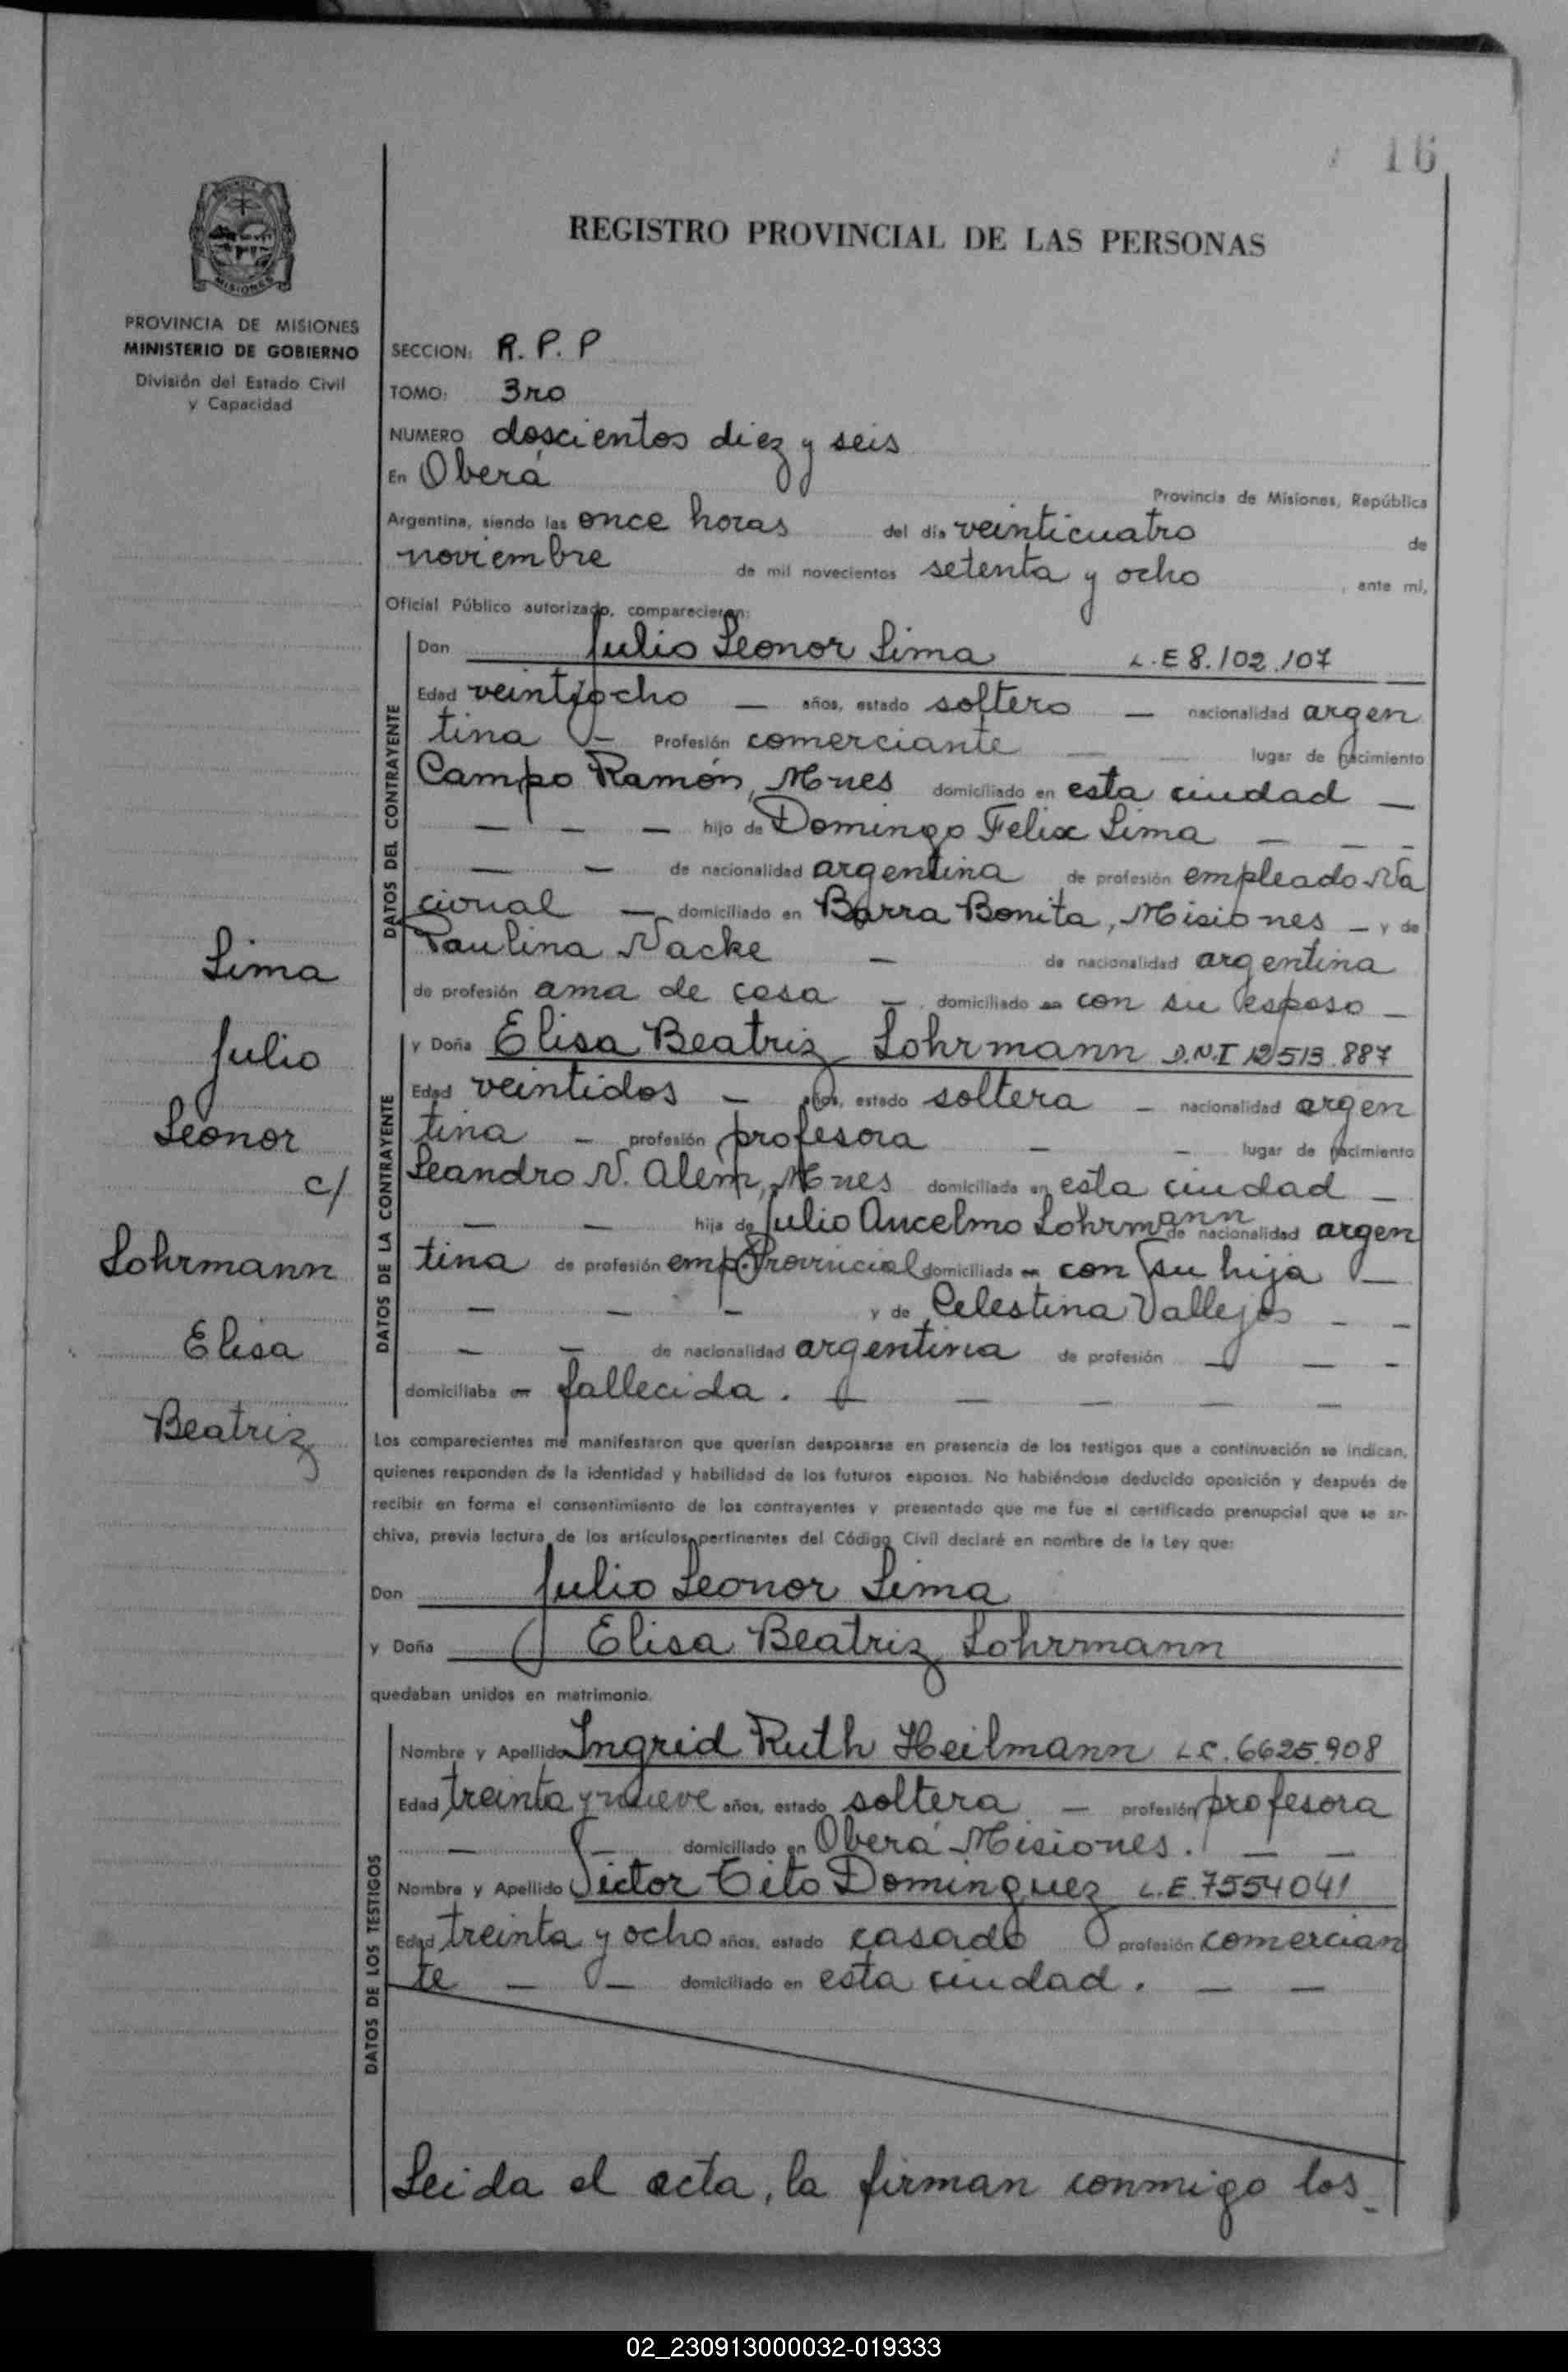 16
REGISTRO PROVINCIAL DE LAS PERSONAS
MISIONES
PROVINCIA DE MISIONES
MINISTERIO DE GOBIERNO
División del Estado Civil
y Capacidad
SECCION: R. P. P
TOMO: 3ro
NUMERO doscientos diez y seis
En Oberá
Provincia de Misiones, República
Argentina, siendo las once horas del día veinticuatro de
noviembre de mil novecientos setenta y ocho, ante mi,
Oficial Público autorizado, comparecieron:
DATOS DEL CONTRAYENTE
Don Julio Leonor Lima L.E 8.102.107
Edad veintiocho — años, estado soltero — nacionalidad argen
tina — Profesión comerciante — — lugar de nacimiento
Campo Ramón, Mnes domiciliado en esta ciudad —
— — — hijo de Domingo Felix Lima — — —
— — de nacionalidad argentina de profesión empleado Na
cional — domiciliado en Barra Bonita, Misiones — y de
Paulina Nacke — de nacionalidad argentina
de profesión ama de casa — domiciliado en con su esposo —
DATOS DE LA CONTRAYENTE
y Doña Elisa Beatriz Lohrmann D.N.I 12513.887
Edad veintidos — años, estado soltera — nacionalidad argen
tina — profesión profesora — — lugar de nacimiento
Leandro N. Alem, Mnes domiciliada en esta ciudad —
— — hija de Julio Ancelmo Lohrmann de nacionalidad argen
tina de profesión emp. Provincial domiciliada en con su hija —
— — — y de Celestina Vallejos — —
— — de nacionalidad argentina de profesión — — —
domiciliaba en fallecida. — — — — —
Los comparecientes me manifestaron que querían desposarse en presencia de los testigos que a continuación se indican,
quienes responden de la identidad y habilidad de los futuros esposos. No habiéndose deducido oposición y después de
recibir en forma el consentimiento de los contrayentes y presentado que me fue el certificado prenupcial que se ar-
chiva, previa lectura de los artículos pertinentes del Código Civil declaré en nombre de la Ley que:
Don Julio Leonor Lima
y Doña Elisa Beatriz Lohrmann
quedaban unidos en matrimonio.
DATOS DE LOS TESTIGOS
Nombre y Apellido Ingrid Ruth Heilmann L.C. 6625.908
Edad treinta y nueve años, estado soltera — profesión profesora
— — domiciliado en Oberá Misiones. — —
Nombre y Apellido Victor Tito Dominguez L.E. 7554041
Edad treinta y ocho años, estado casado profesión comercian
te — — domiciliado en esta ciudad. — —
Leida el acta, la firman conmigo los
Lima
Julio
Leonor
c/
Lohrmann
Elisa
Beatriz
02_230913000032-019333